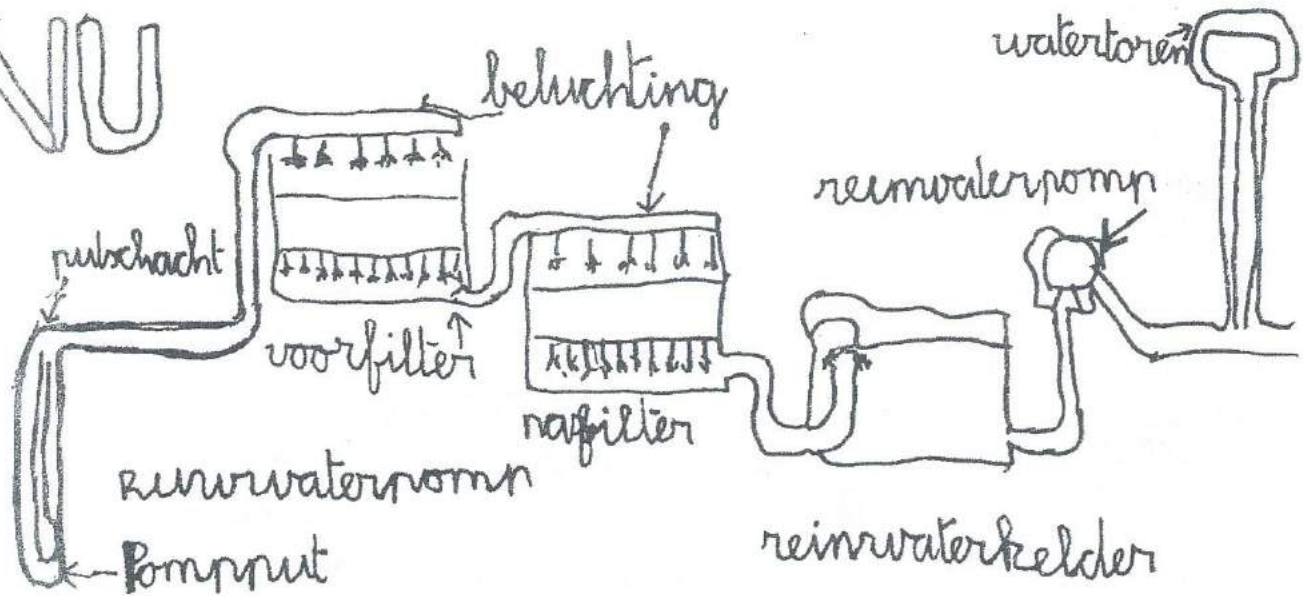 NU
watertoren
beluchting
reinwaterpomp
putschacht
voorfilter
nafilter
Ruwwaterpomp
Pompput
reinwaterkelder